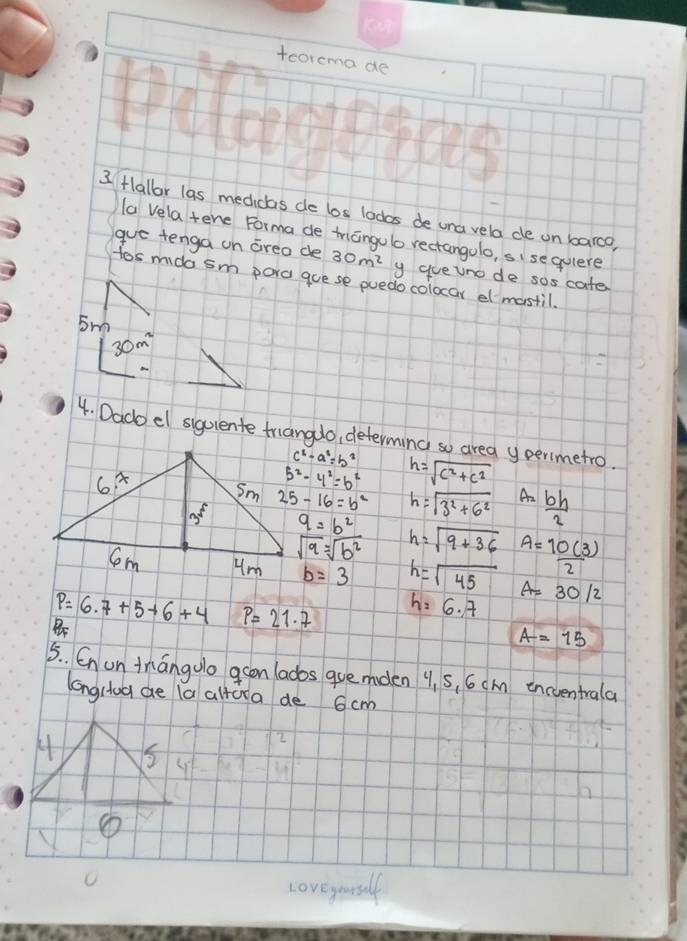 teorema de
pitagoras
3. Hallar las medidas de los lados de una vela de un barco,
la vela tene Forma de triángulo rectangulo, si se quiere
que tenga un área de 30m² y que uno de sos cate
tos mida 5m para que se puedo colocar el mastil.
5m
30m²
4. Dado el siguiente triangulo, determina su area y perimetro.
6.7
5m
3m
6m
4m
c²-a²=b²
5²-4²=b²
25-16=b²
9=b²
√9=√b²
b=3
h=√c²+c²
h=√3²+6²
h=√9+36
h=√45
h=6.7
A=bh/2
A=10(3)/2
A=30/2
A=15
P=6.7+5+6+4 P=21.7
5.. En un triángulo acon lados que miden 4,5,6 cm encuentrala
longitud de la altura de 6cm
4
5
6
LOVE yourself